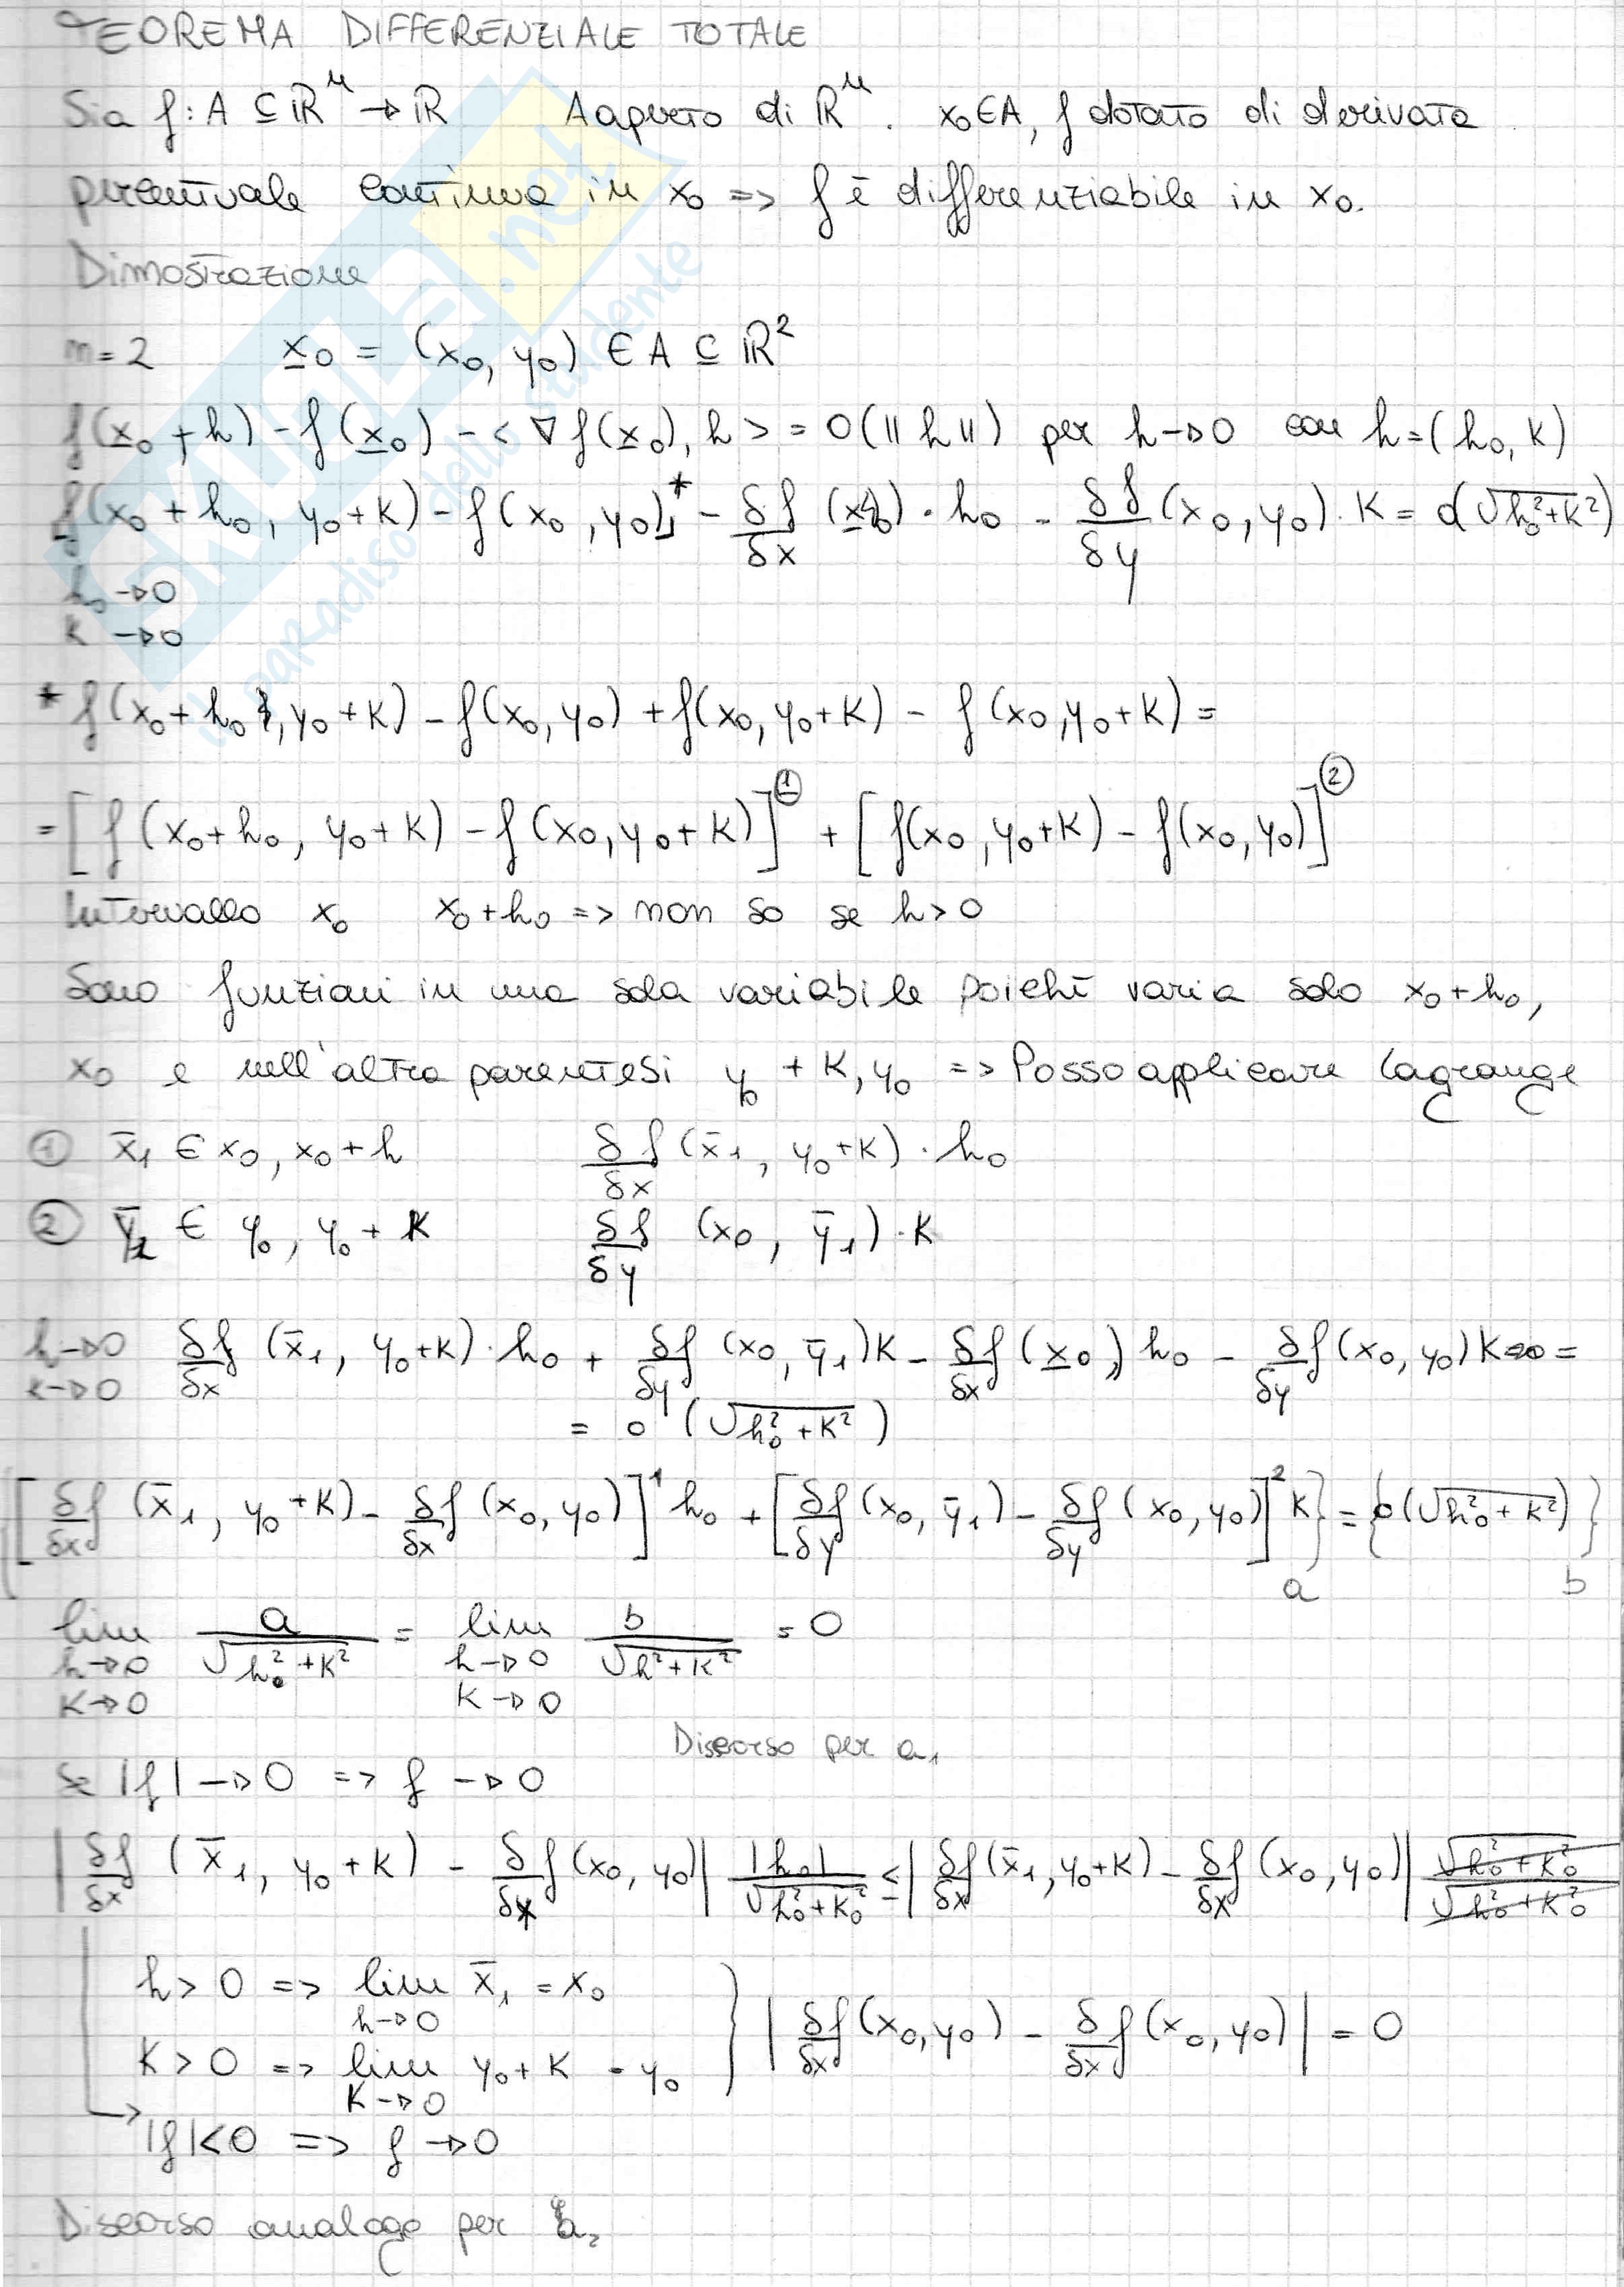 TEOREMA DIFFERENZIALE TOTALE
Sia f: A ⊆ ℝⁿ → ℝ   A aperto di ℝⁿ. x₀ ∈ A, f dotata di derivata
continua in x₀ => f è differenziabile in x₀.
Dimostrazione
n = 2   x̲₀ = (x₀, y₀) ∈ A ⊆ ℝ²
f(x̲₀ + h) - f(x̲₀) - <∇f(x̲₀), h> = o(||h||) per h→0 con h = (h₀, k)
f(x₀ + h₀, y₀ + k) - f(x₀, y₀)]* - δf/δx (x̲₀) · h₀ - δf/δy (x₀, y₀) · k = o(√(h₀² + k²))
h₀ → 0
k → 0
* f(x₀ + h₀, y₀ + k) - f(x₀, y₀) + f(x₀, y₀ + k) - f(x₀, y₀ + k) =
= [f(x₀ + h₀, y₀ + k) - f(x₀, y₀ + k)]① + [f(x₀, y₀ + k) - f(x₀, y₀)]②
Intervallo x₀   x₀ + h₀ => non so se h > 0
Sono funzioni in una sola variabile poichè varia solo x₀ + h₀,
x₀ e nell'altra parentesi y₀ + k, y₀ => Posso applicare Lagrange
① x̄₁ ∈ x₀, x₀ + h   δf/δx (x̄₁, y₀ + k) · h₀
② ȳ₁ ∈ y₀, y₀ + k   δf/δy (x₀, ȳ₁) · k
h→0 k→0   δf/δx (x̄₁, y₀ + k) · h₀ + δf/δy (x₀, ȳ₁) k - δf/δx (x̲₀) h₀ - δf/δy (x₀, y₀) k =
= o (√(h₀² + k²))
{[δf/δx (x̄₁, y₀ + k) - δf/δx (x₀, y₀)]¹ h₀ + [δf/δy (x₀, ȳ₁) - δf/δy (x₀, y₀)]² k} = {o(√(h₀² + k²))}
a   b
lim h→0 k→0 a/√(h₀² + k²) = lim h→0 k→0 b/√(h² + k²) = 0
Discorso per a₁
se |f| → 0 => f → 0
|δf/δx (x̄₁, y₀ + k) - δf/δx (x₀, y₀)| |h₀|/√(h₀² + k₀²) ≤ |δf/δx (x̄₁, y₀ + k) - δf/δx (x₀, y₀)| √(h₀² + k₀²)/√(h₀² + k₀²)
h > 0 => lim h→0 x̄₁ = x₀
k > 0 => lim k→0 y₀ + k = y₀ } |δf/δx (x₀, y₀) - δf/δx (x₀, y₀)| = 0
|f| < 0 => f → 0
Discorso analogo per a₂
SKUOLA.net
il paradiso dello studente